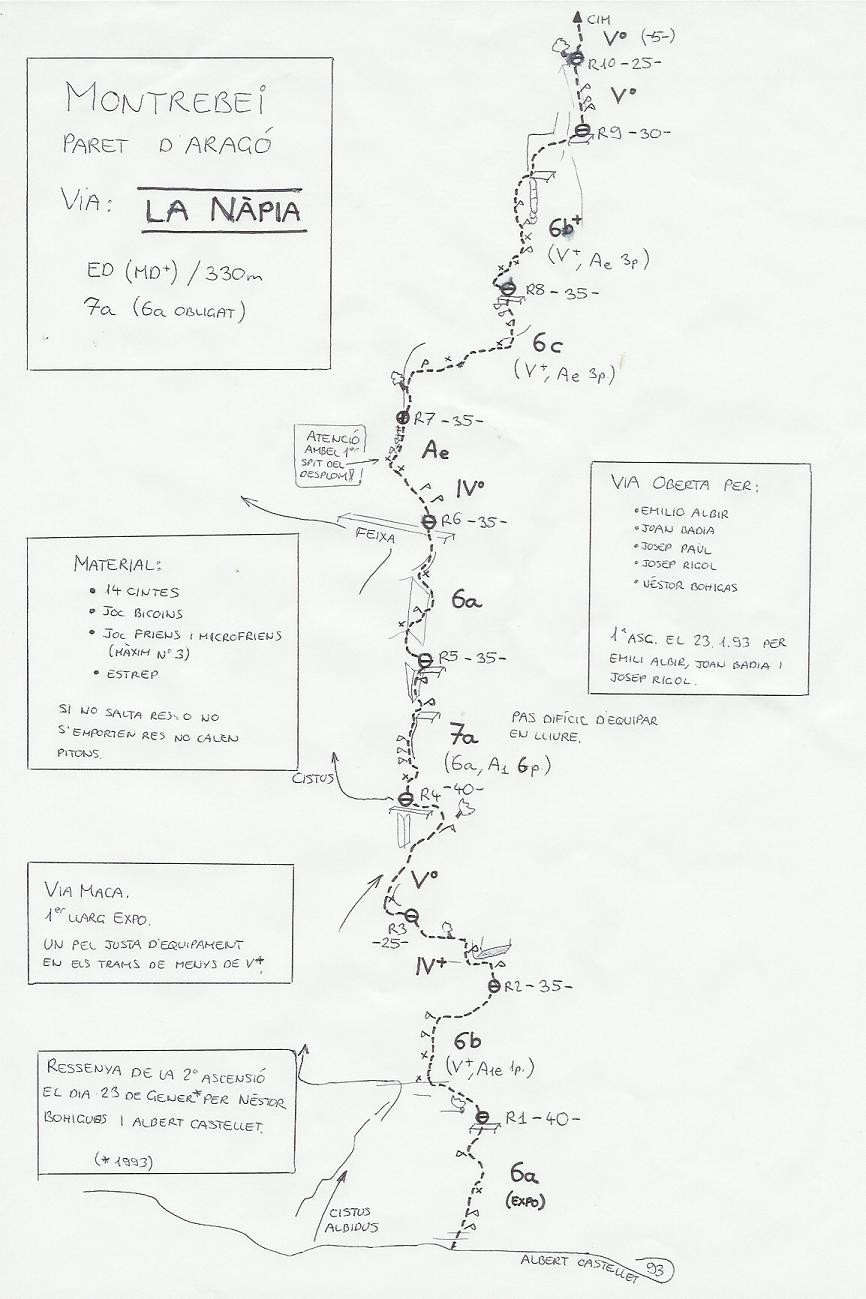 CIM
V° (-5-)
R10 -25-
V°
R9 -30-
MONTREBEI
PARET D'ARAGÓ
VIA: LA NÀPIA
ED (MD+) / 330m
7a (6a OBLIGAT)
6b+
(V+, Ae 3p.)
R8 -35-
6c
(V+, Ae 3p.)
R7 -35-
ATENCIÓ
AMB EL 1er
SPIT DEL
DESPLOM!!
Ae
IV°
R6 -35-
FEIXA
VIA OBERTA PER:
• EMILIO ALBIR
• JOAN BADIA
• JOSEP PAÜL
• JOSEP RIGOL
• NÉSTOR BOHIGAS
1ª ASC. EL 23.1.93 PER
EMILI ALBIR, JOAN BADIA I
JOSEP RIGOL.
MATERIAL:
• 14 CINTES
• JOC BICOINS
• JOC FRIENS I MICROFRIENS
(MÀXIM Nº 3)
• ESTREP
SI NO SALTA RES O NO
S'EMPORTEN RES NO CALEN
PITONS.
6a
R5 -35-
PAS DIFÍCIL D'EQUIPAR
EN LLIURE.
7a
(6a, A1 6p.)
CISTUS
R4 -40-
V°
VIA MACA.
1er LLARG EXPO.
UN PEL JUSTA D'EQUIPAMENT
EN ELS TRAMS DE MENYS DE V+.
R3
-25-
IV+
R2 -35-
6b
(V+, A1e 1p.)
RESSENYA DE LA 2ª ASCENSIÓ
EL DIA 23 DE GENER* PER NÉSTOR
BOHIGUES I ALBERT CASTELLET.
(* 1993)
R1 -40-
6a
(EXPO)
CISTUS
ALBIDUS
ALBERT CASTELLET 93